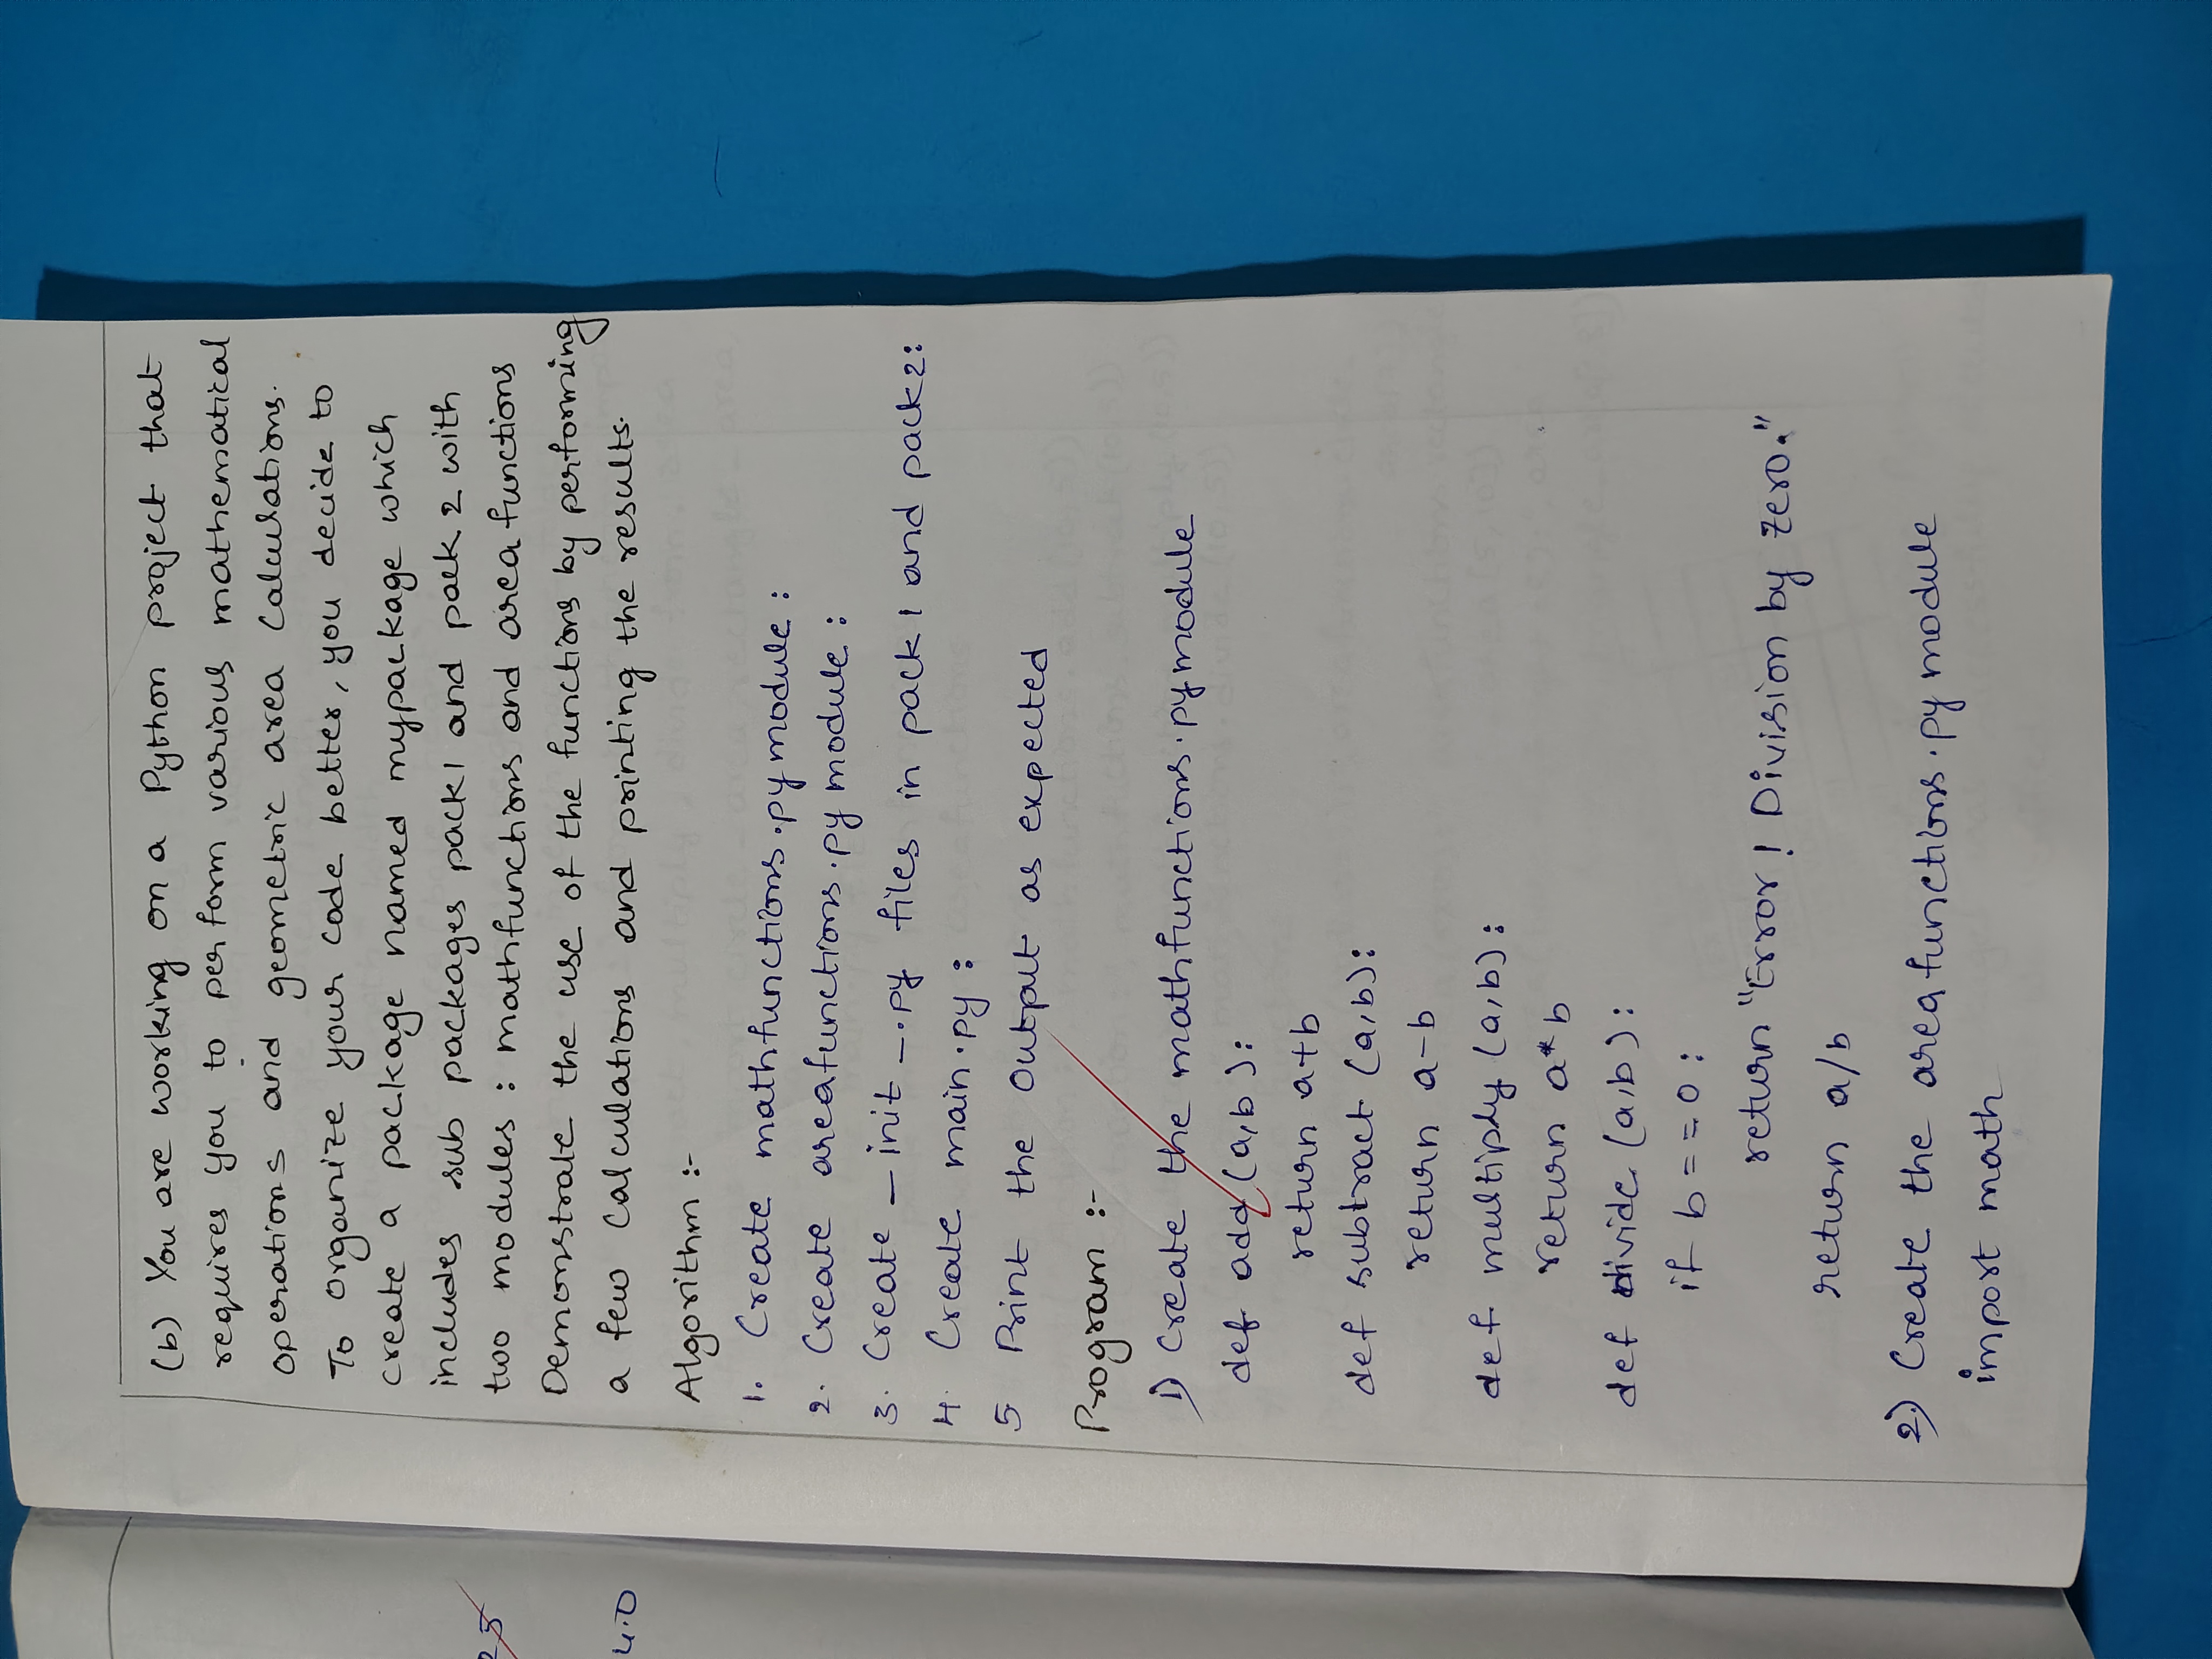 25
4.0
(b) You are working on a Python project that
requires you to perform various mathematical
operations and geometric area calculations.
To organize your code better, you decide to
create a package named mypackage which
includes sub packages pack1 and pack 2 with
two modules : mathfunctions and area functions
Demonstrate the use of the functions by performing
a few calculations and printing the results.
Algorithm :-
1. Create mathfunctions.py module :
2. Create areafunctions.py module :
3. Create _init_.py files in pack 1 and pack2:
4. Create main.py :
5 Print the output as expected
Program :-
1) Create the mathfunctions.py module
def add (a,b):
return a+b
def subtract (a,b):
return a-b
def multiply (a,b):
return a*b
def divide (a,b):
if b==0:
return "Error! Division by zero."
return a/b
2.) Create the area functions.py module
import math